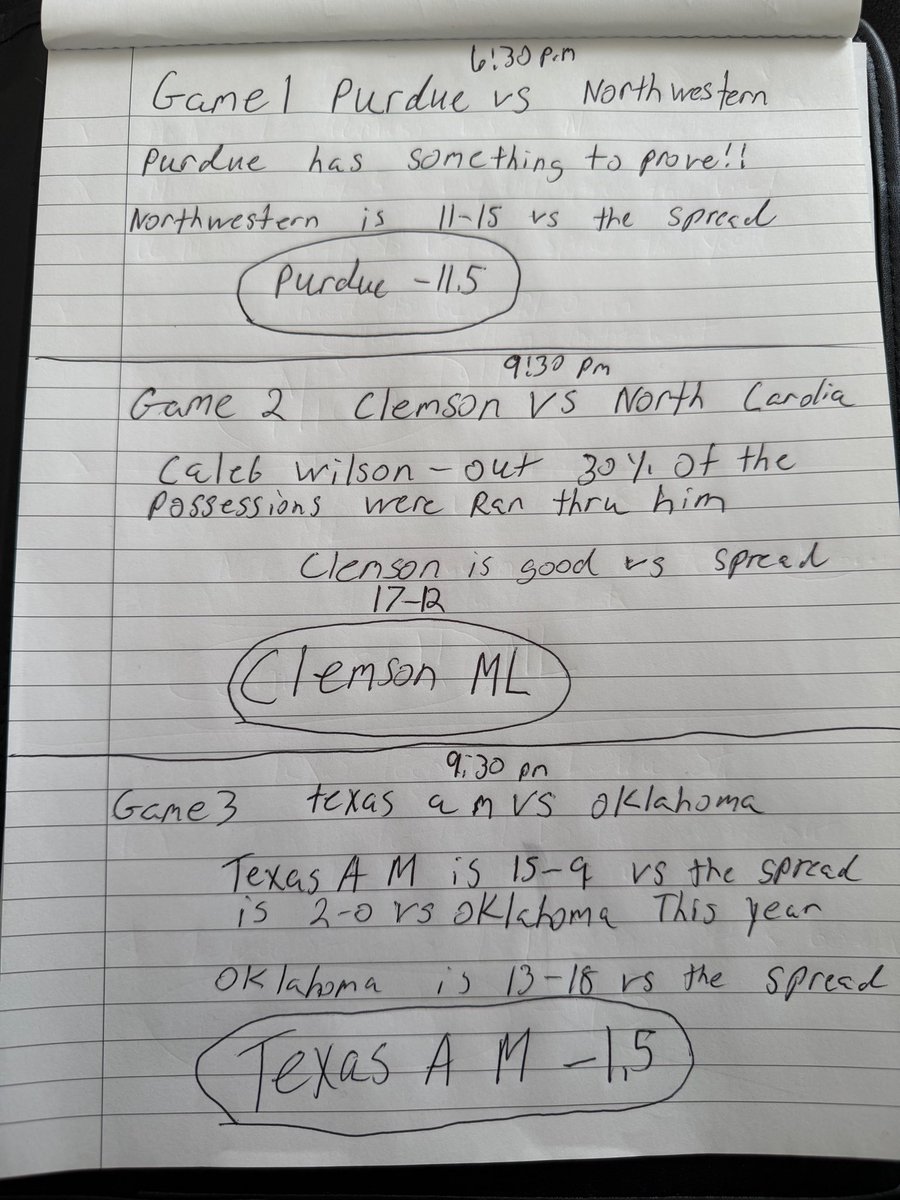 6:30 p.m
Game 1 Purdue vs Northwestern
Purdue has something to prove!!
Northwestern is 11-15 vs the spread
Purdue -11.5
9:30 pm
Game 2 Clemson vs North Carolia
Caleb Wilson - out 30% of the
possessions were Ran thru him
Clemson is good vs spread
17-12
Clemson ML
9:30 pm
Game 3 texas a m vs oklahoma
Texas A M is 15-9 vs the spread
is 2-0 vs oklahoma This year
Oklahoma is 13-18 vs the spread
Texas A M -1.5